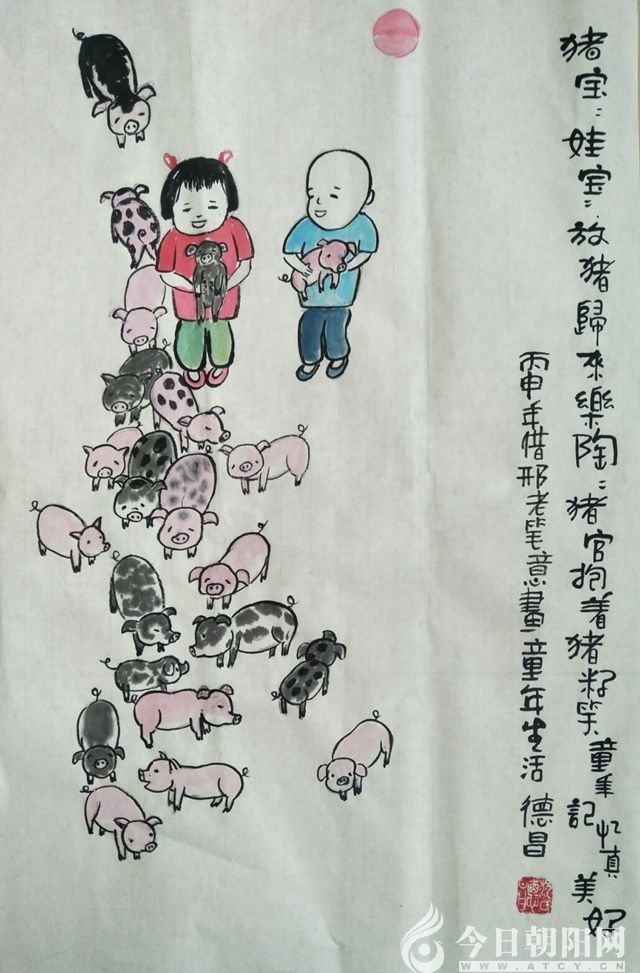 猪宝：娃宝：放猪歸来樂陶：猪官抱着猪籽笑童年記忆真美好
丙申年借邢老笔意畫童年生活 德昌
今日朝阳网
WWW.ATCY.CN